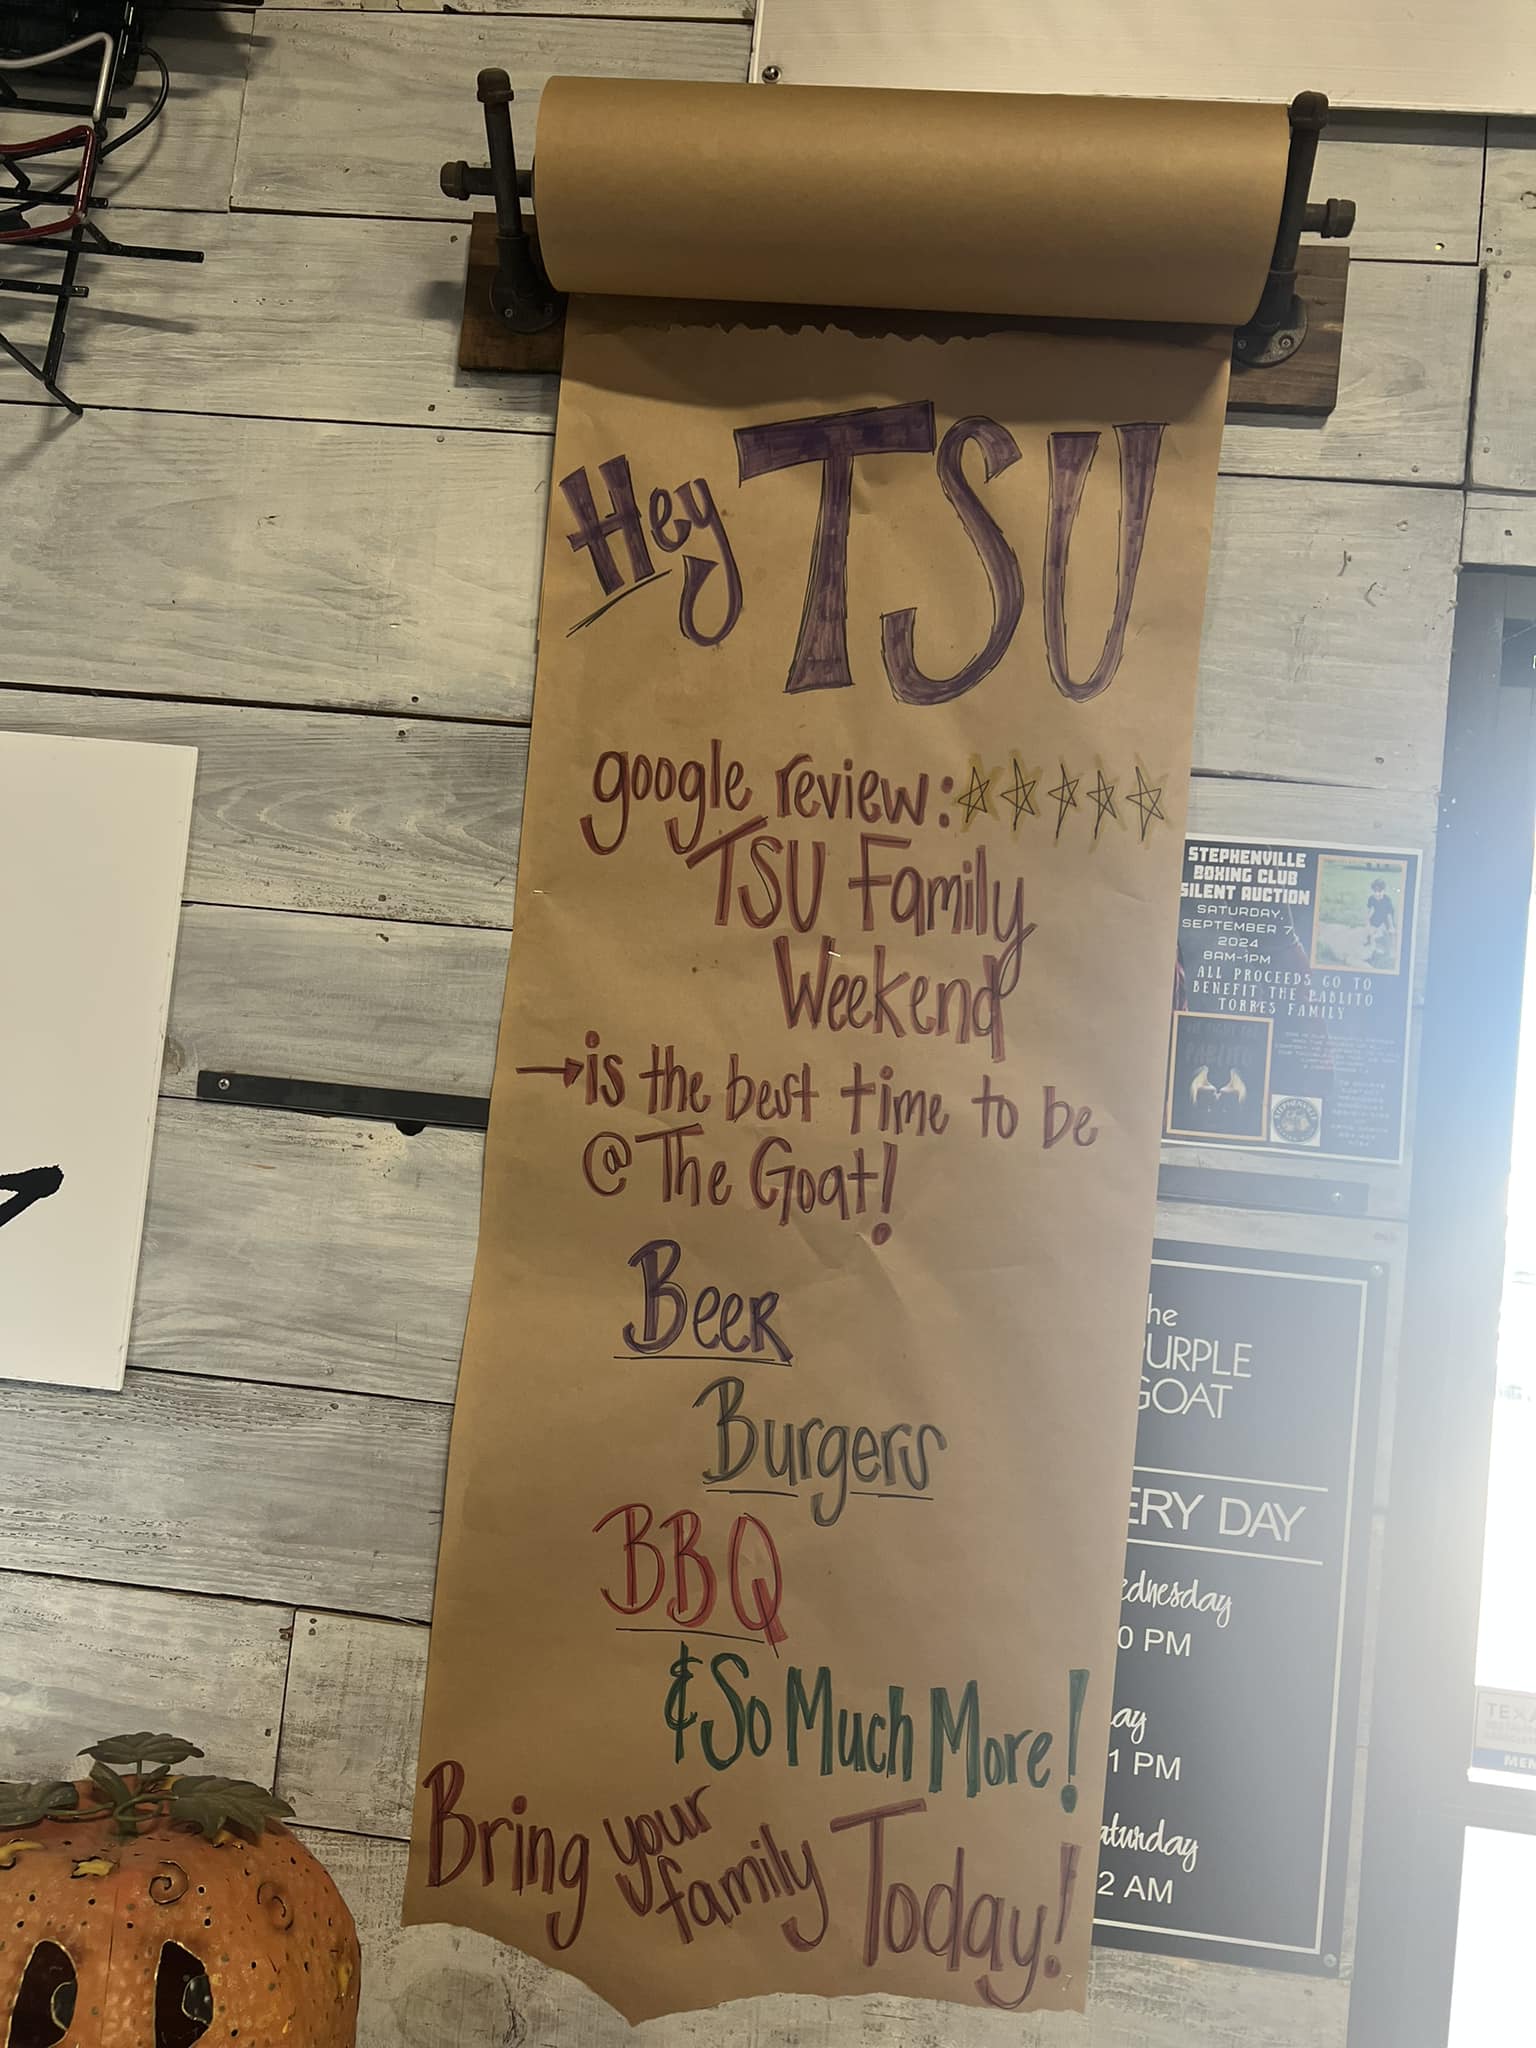 Hey TSU
google review: ☆☆☆☆☆
TSU Family
Weekend
→is the best time to be
@ The Goat!
Beer
Burgers
BBQ
& So Much More!
Bring your family Today!
STEPHENVILLE
BOXING CLUB
SILENT AUCTION
SATURDAY,
SEPTEMBER 7,
2024
8AM-1PM
ALL PROCEEDS GO TO
BENEFIT THE PABLITO
TORRES FAMILY
PABLITO
STEPHENVILLE
he
URPLE
GOAT
ERY DAY
ednesday
0 PM
ay
1 PM
aturday
2 AM
TEXA
MEM